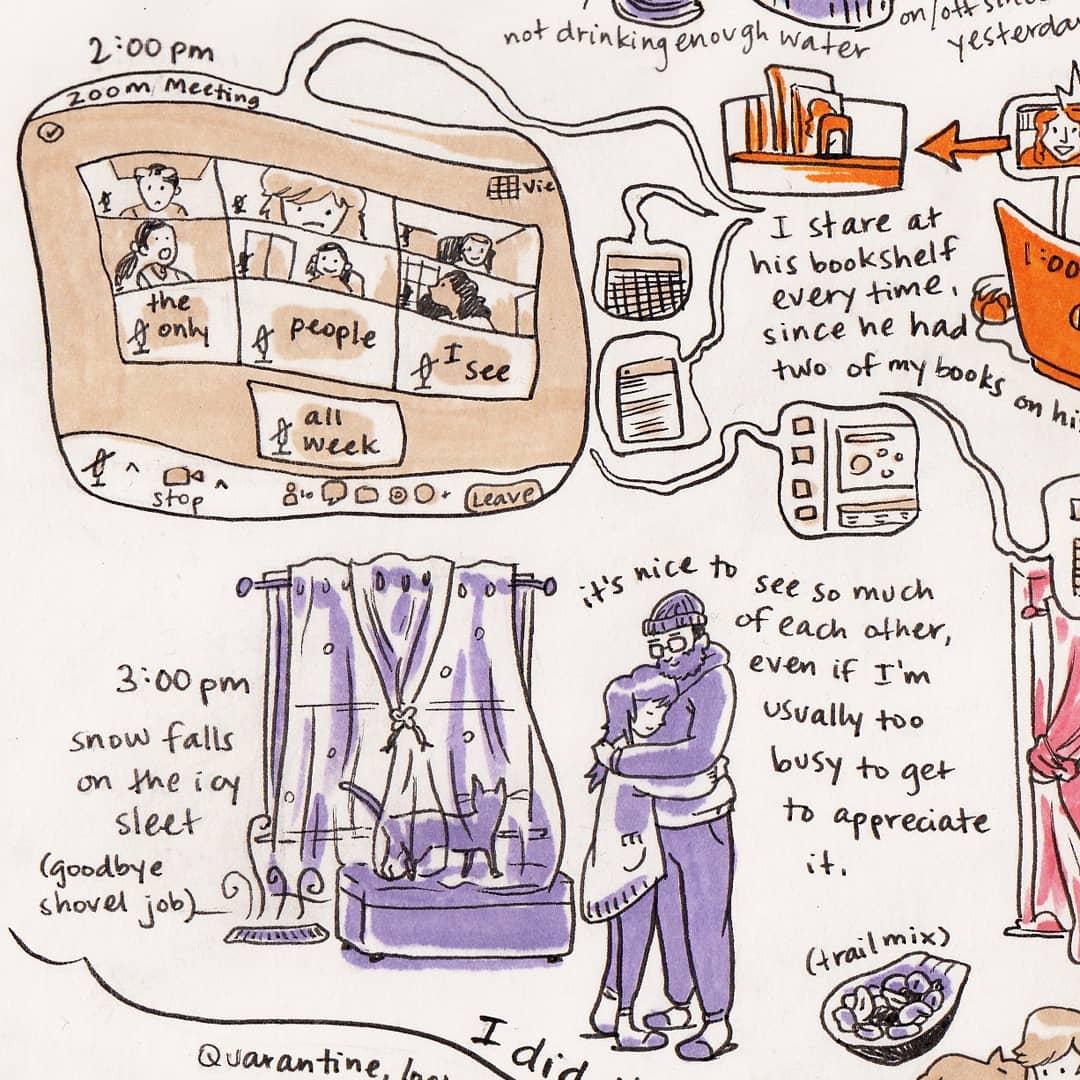 not drinking enough water
on/off since
2:00 pm
Zoom Meeting
View
the
only
people
I
see
all
week
stop
Leave
I stare at
his bookshelf
every time,
since he had
two of my books on
1:00
3:00 pm
snow falls
on the icy
sleet
(goodbye
shovel job)
it's nice to
see so much
of each other,
even if I'm
usually too
busy to get
to appreciate
it.
(trail mix)
I did
Quarantine,